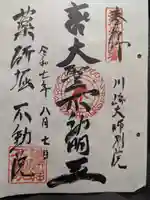 奉拝
川崎大師別院
大聖不動明王
令和七年八月七日
薬研堀
不動院